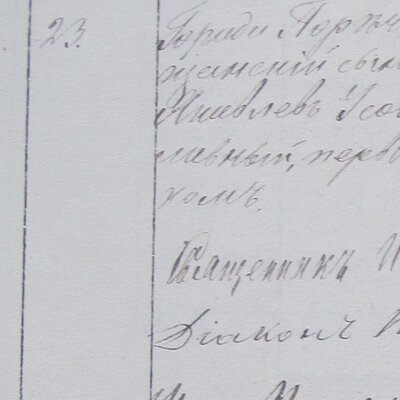 23. Города Порѣч
щанскій сынъ
Яковлевъ Усов
славный, перв
комъ.
Священникъ
Діаконъ